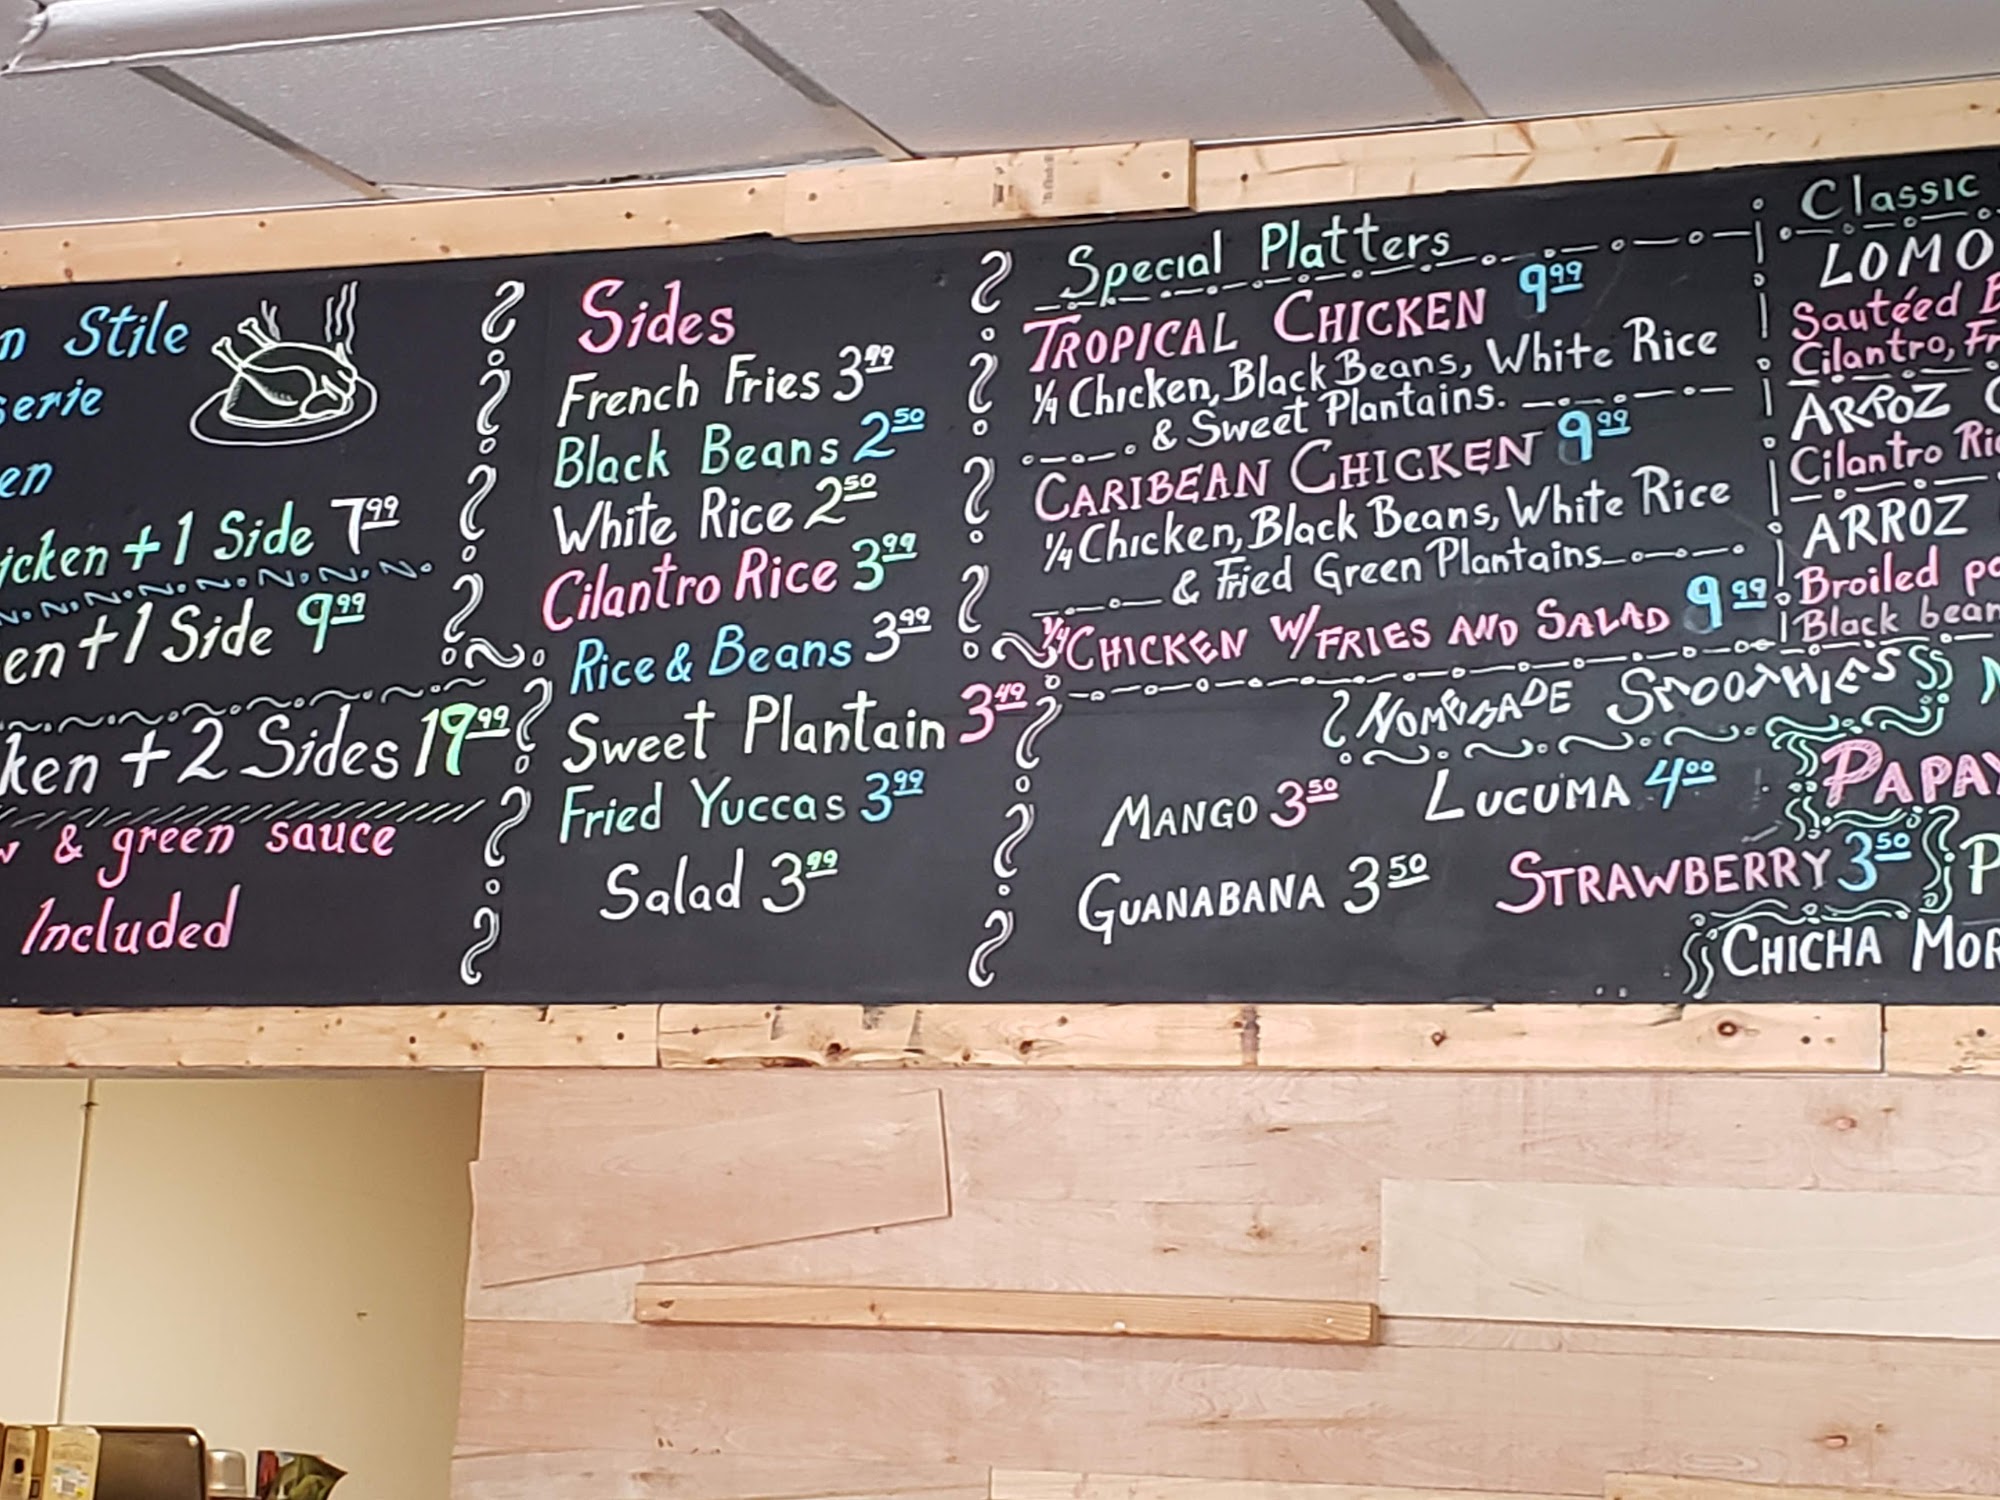 Stile
Sides
French Fries 3.99
Black Beans 2.50
White Rice 2.50
Cilantro Rice 3.99
Rice & Beans 3.99
Sweet Plantain 3.49
Fried Yuccas 3.99
Salad 3.99
+ 1 Side 7.99
+ 1 Side 9.99
+ 2 Sides 19.99
& green sauce
Included
Special Platters
TROPICAL CHICKEN 9.99
1/4 Chicken, Black Beans, White Rice
& Sweet Plantains.
CARIBEAN CHICKEN 9.99
1/4 Chicken, Black Beans, White Rice
& Fried Green Plantains
1/4 CHICKEN W/FRIES AND SALAD 9.99
HOMEMADE SMOOTHIES
MANGO 3.50
LUCUMA 4.00
GUANABANA 3.50
STRAWBERRY 3.50
CHICHA
Classic
LOMO
Sautéed
Cilantro,
ARROZ
Cilantro
ARROZ
Broiled
Black